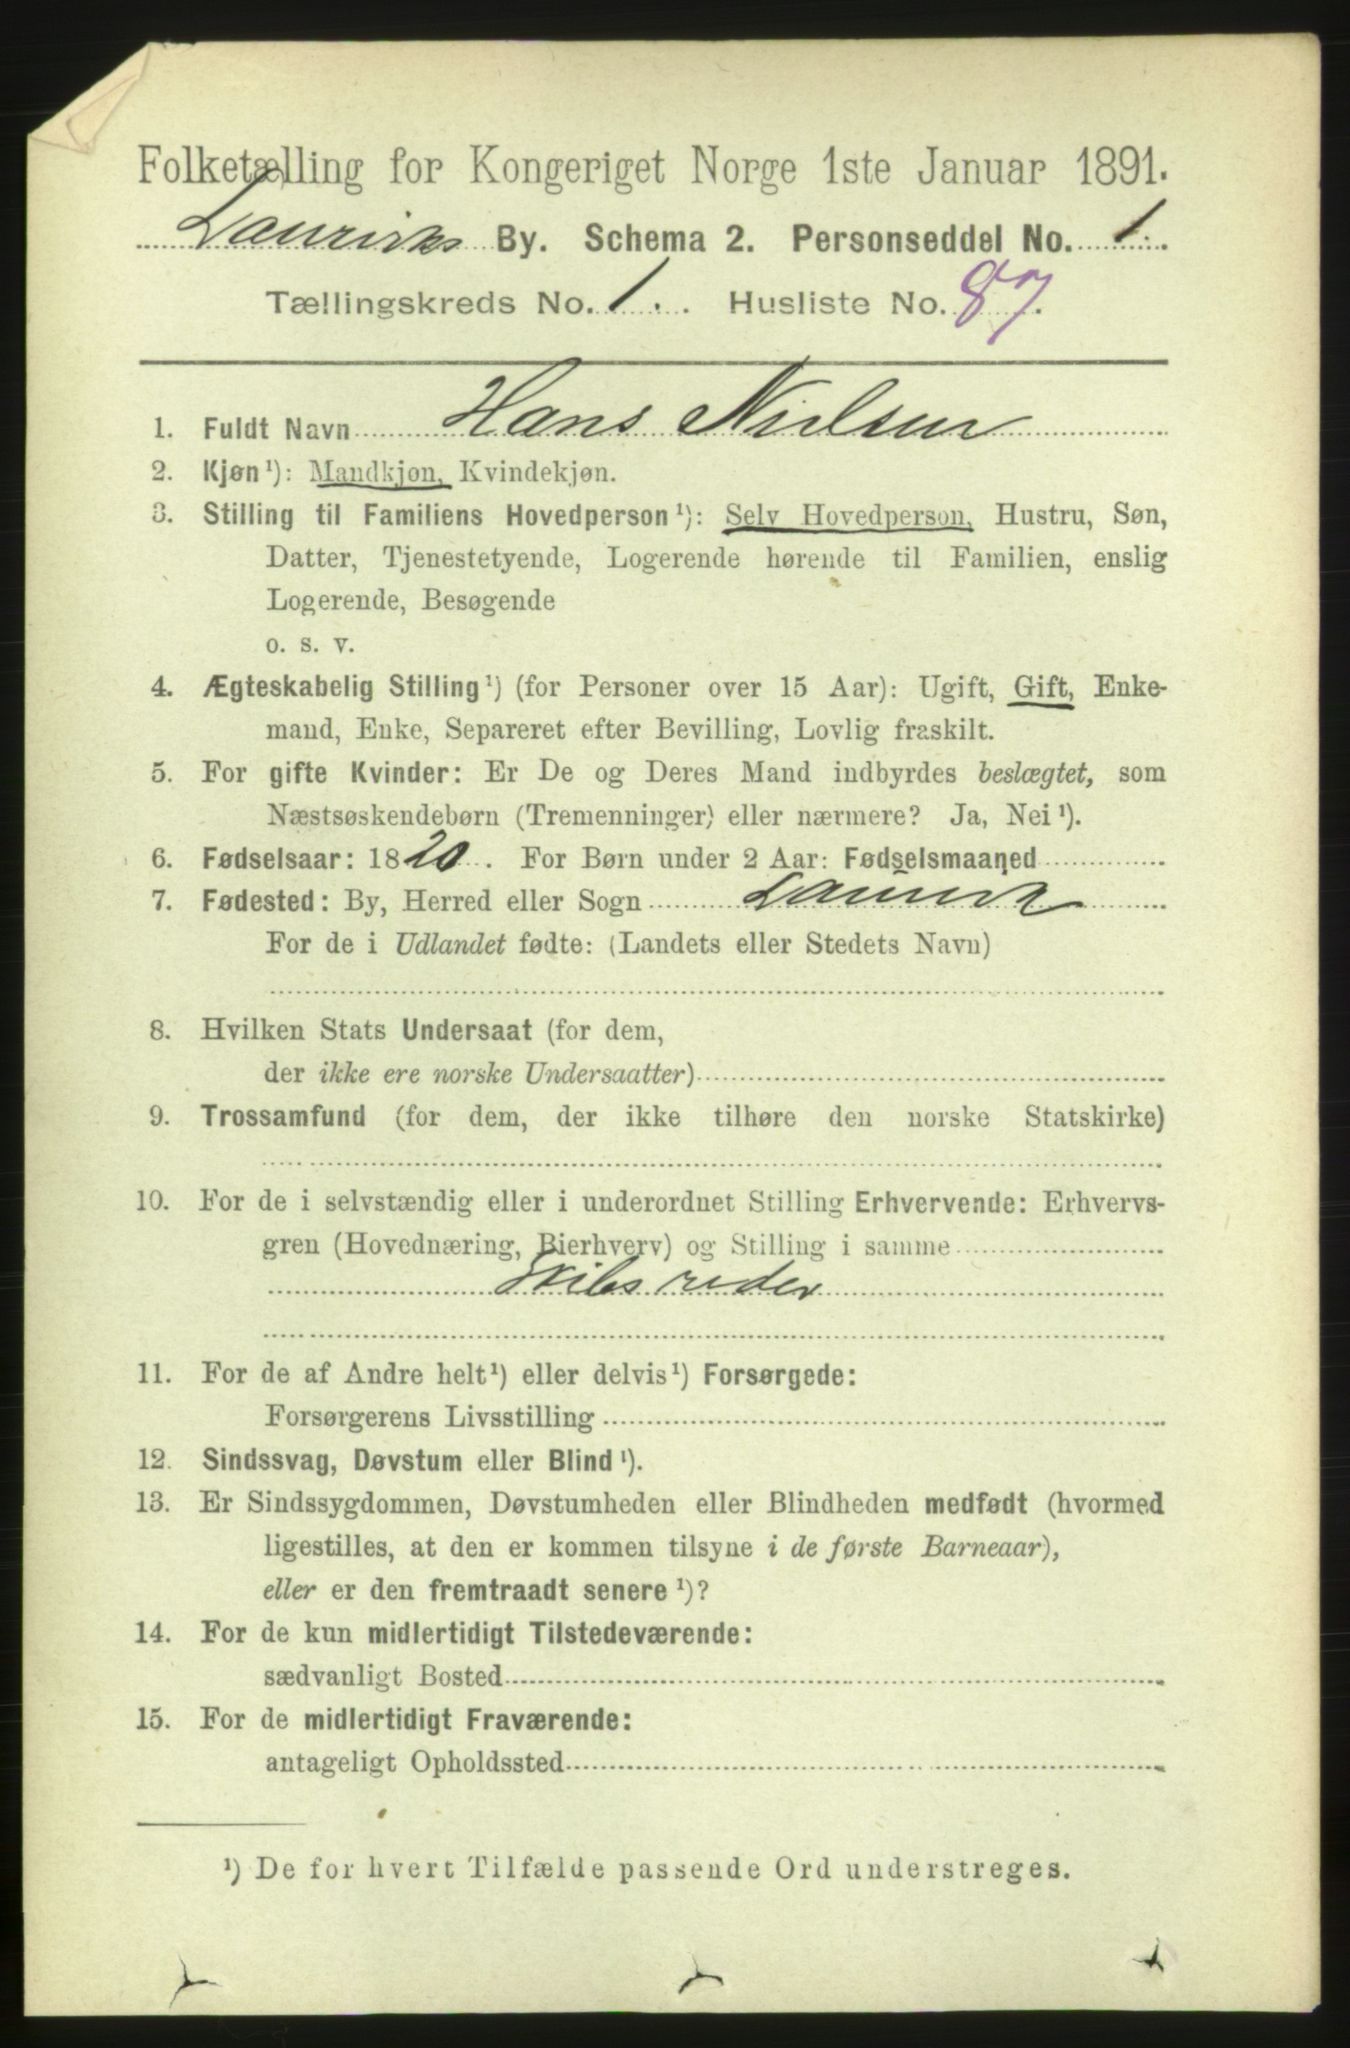 Folketælling for Kongeriget Norge 1ste Januar 1891.
Laurviks By. Schema 2. Personseddel No. 1.
Tællingskreds No. 1. Husliste No. 87.
1. Fuldt Navn Hans Nielsen
2. Kjøn¹): Mandkjøn, Kvindekjøn.
3. Stilling til Familiens Hovedperson¹): Selv Hovedperson, Hustru, Søn,
Datter, Tjenestetyende, Logerende hørende til Familien, enslig
Logerende, Besøgende
o. s. v.
4. Ægteskabelig Stilling¹) (for Personer over 15 Aar): Ugift, Gift, Enke-
mand, Enke, Separeret efter Bevilling, Lovlig fraskilt.
5. For gifte Kvinder: Er De og Deres Mand indbyrdes beslægtet, som
Næstsøskendebørn (Tremenninger) eller nærmere? Ja, Nei¹).
6. Fødselsaar: 1820. For Børn under 2 Aar: Fødselsmaaned
7. Fødested: By, Herred eller Sogn Laurvik
For de i Udlandet fødte: (Landets eller Stedets Navn)
8. Hvilken Stats Undersaat (for dem,
der ikke ere norske Undersaatter)
9. Trossamfund (for dem, der ikke tilhøre den norske Statskirke)
10. For de i selvstændig eller i underordnet Stilling Erhvervende: Erhvervs-
gren (Hovednæring, Bierhverv) og Stilling i samme
Skibsreder
11. For de af Andre helt¹) eller delvis¹) Forsørgede:
Forsørgerens Livsstilling
12. Sindssvag, Døvstum eller Blind¹).
13. Er Sindssygdommen, Døvstumheden eller Blindheden medfødt (hvormed
ligestilles, at den er kommen tilsyne i de første Barneaar),
eller er den fremtraadt senere¹)?
14. For de kun midlertidigt Tilstedeværende:
sædvanligt Bosted
15. For de midlertidigt Fraværende:
antageligt Opholdssted
¹) De for hvert Tilfælde passende Ord understreges.